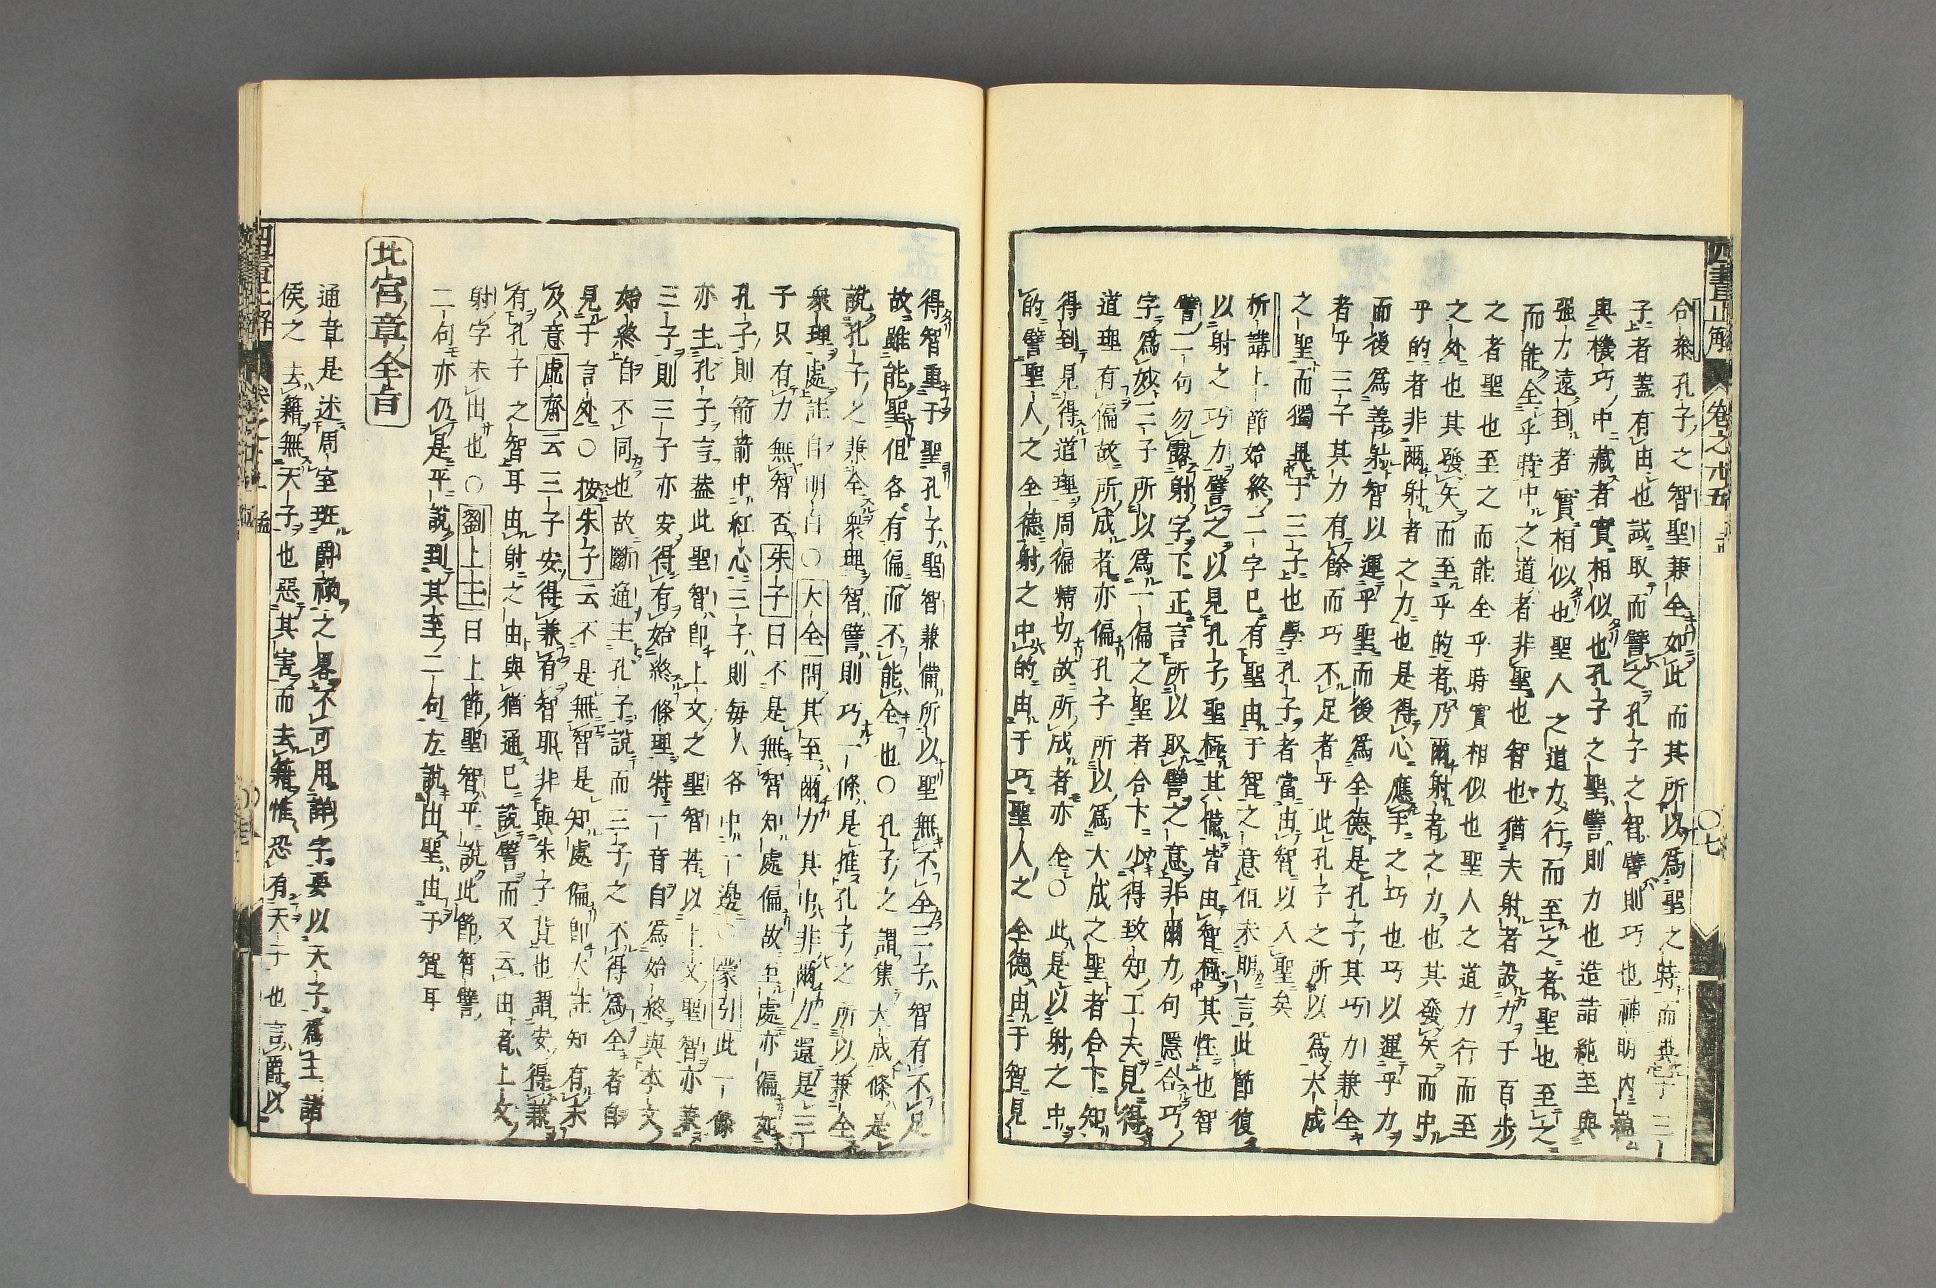 四書正解
卷之十五
合參孔子之智聖兼全如此而其所以爲聖之時而異于三
子者蓋有由也試取而譬之孔子之智譬則巧也神明內蘊
與機巧中藏者實相似也孔子之聖譬則力也造詣純至與
强力遠到者實相似也聖人之道力行而至之者聖也至之
而能全乎時中之道者非聖也智也猶夫射者設力于百步
之者聖也至之而能全乎時實相似也聖人之道力行而至
之处也其發矢而至乎的者乃爾射者之力也其發矢而中
乎的者非爾射者之力也是得心應手之巧也巧以運乎力
而後爲善射智以運乎聖而後爲全德是孔子其巧力兼全
者乎三子其力有餘而巧不足者乎此孔子之所以爲大成
之聖而獨異于三子也學孔子者當由智以入聖矣
所講上節始終二字已有聖由于智之意但未明言此節復
以射之巧力譬之以見孔子聖極其備皆由智極其性也智
譬二句勿露射字下正言所以取譬之意非爾力句隱含巧
字爲妙三子所以爲一偏之聖者合下少得致知工夫見得
道理有偏故所成者亦偏孔子所以爲大成之聖者合下知
得到見得道理周徧精切故所成者亦全○此是以射之中
的譬聖人之全德射之中的由于巧聖人之全德由于智見
得智重于聖孔子聖智兼備所以聖無不全三子智有不足
故雖能聖但各有偏而不能全也○孔子之謂集大成條是
說孔子之兼全衆理智譬則巧一條是推孔子之所以兼全
衆理處註自明白○大全問其至爾力其中非爾力還是三
子只有力無智否朱子曰不是無智知處偏故至處亦偏如
孔子則箭箭中紅心三子則每人各中一邊○蒙引此一條
亦主孔子言葢此聖智卽上文之聖智若以上文聖智亦兼
三子則三子亦安得有始終條理特一音自爲始終與本文
始終自不同也故斷通主孔子說而三子之不得爲全者自
見于言外○按朱子云不是無智是知處偏卽大註知有未
及意虛齋云三子安得兼有智耶非與朱子背也謂安得兼
有孔子之智耳由射之由與猶通已說譬而又云由者上文
射字未出也○劉上主曰上節聖智平說此節智譬
二句亦仍是平說到其至二句方說出聖由于智耳
北宮章全旨
通章是述周室班爵祿之畧不可用講字要以天子爲主諸
侯之去籍無天子也惡其害而去籍惟恐有天子也言爵以